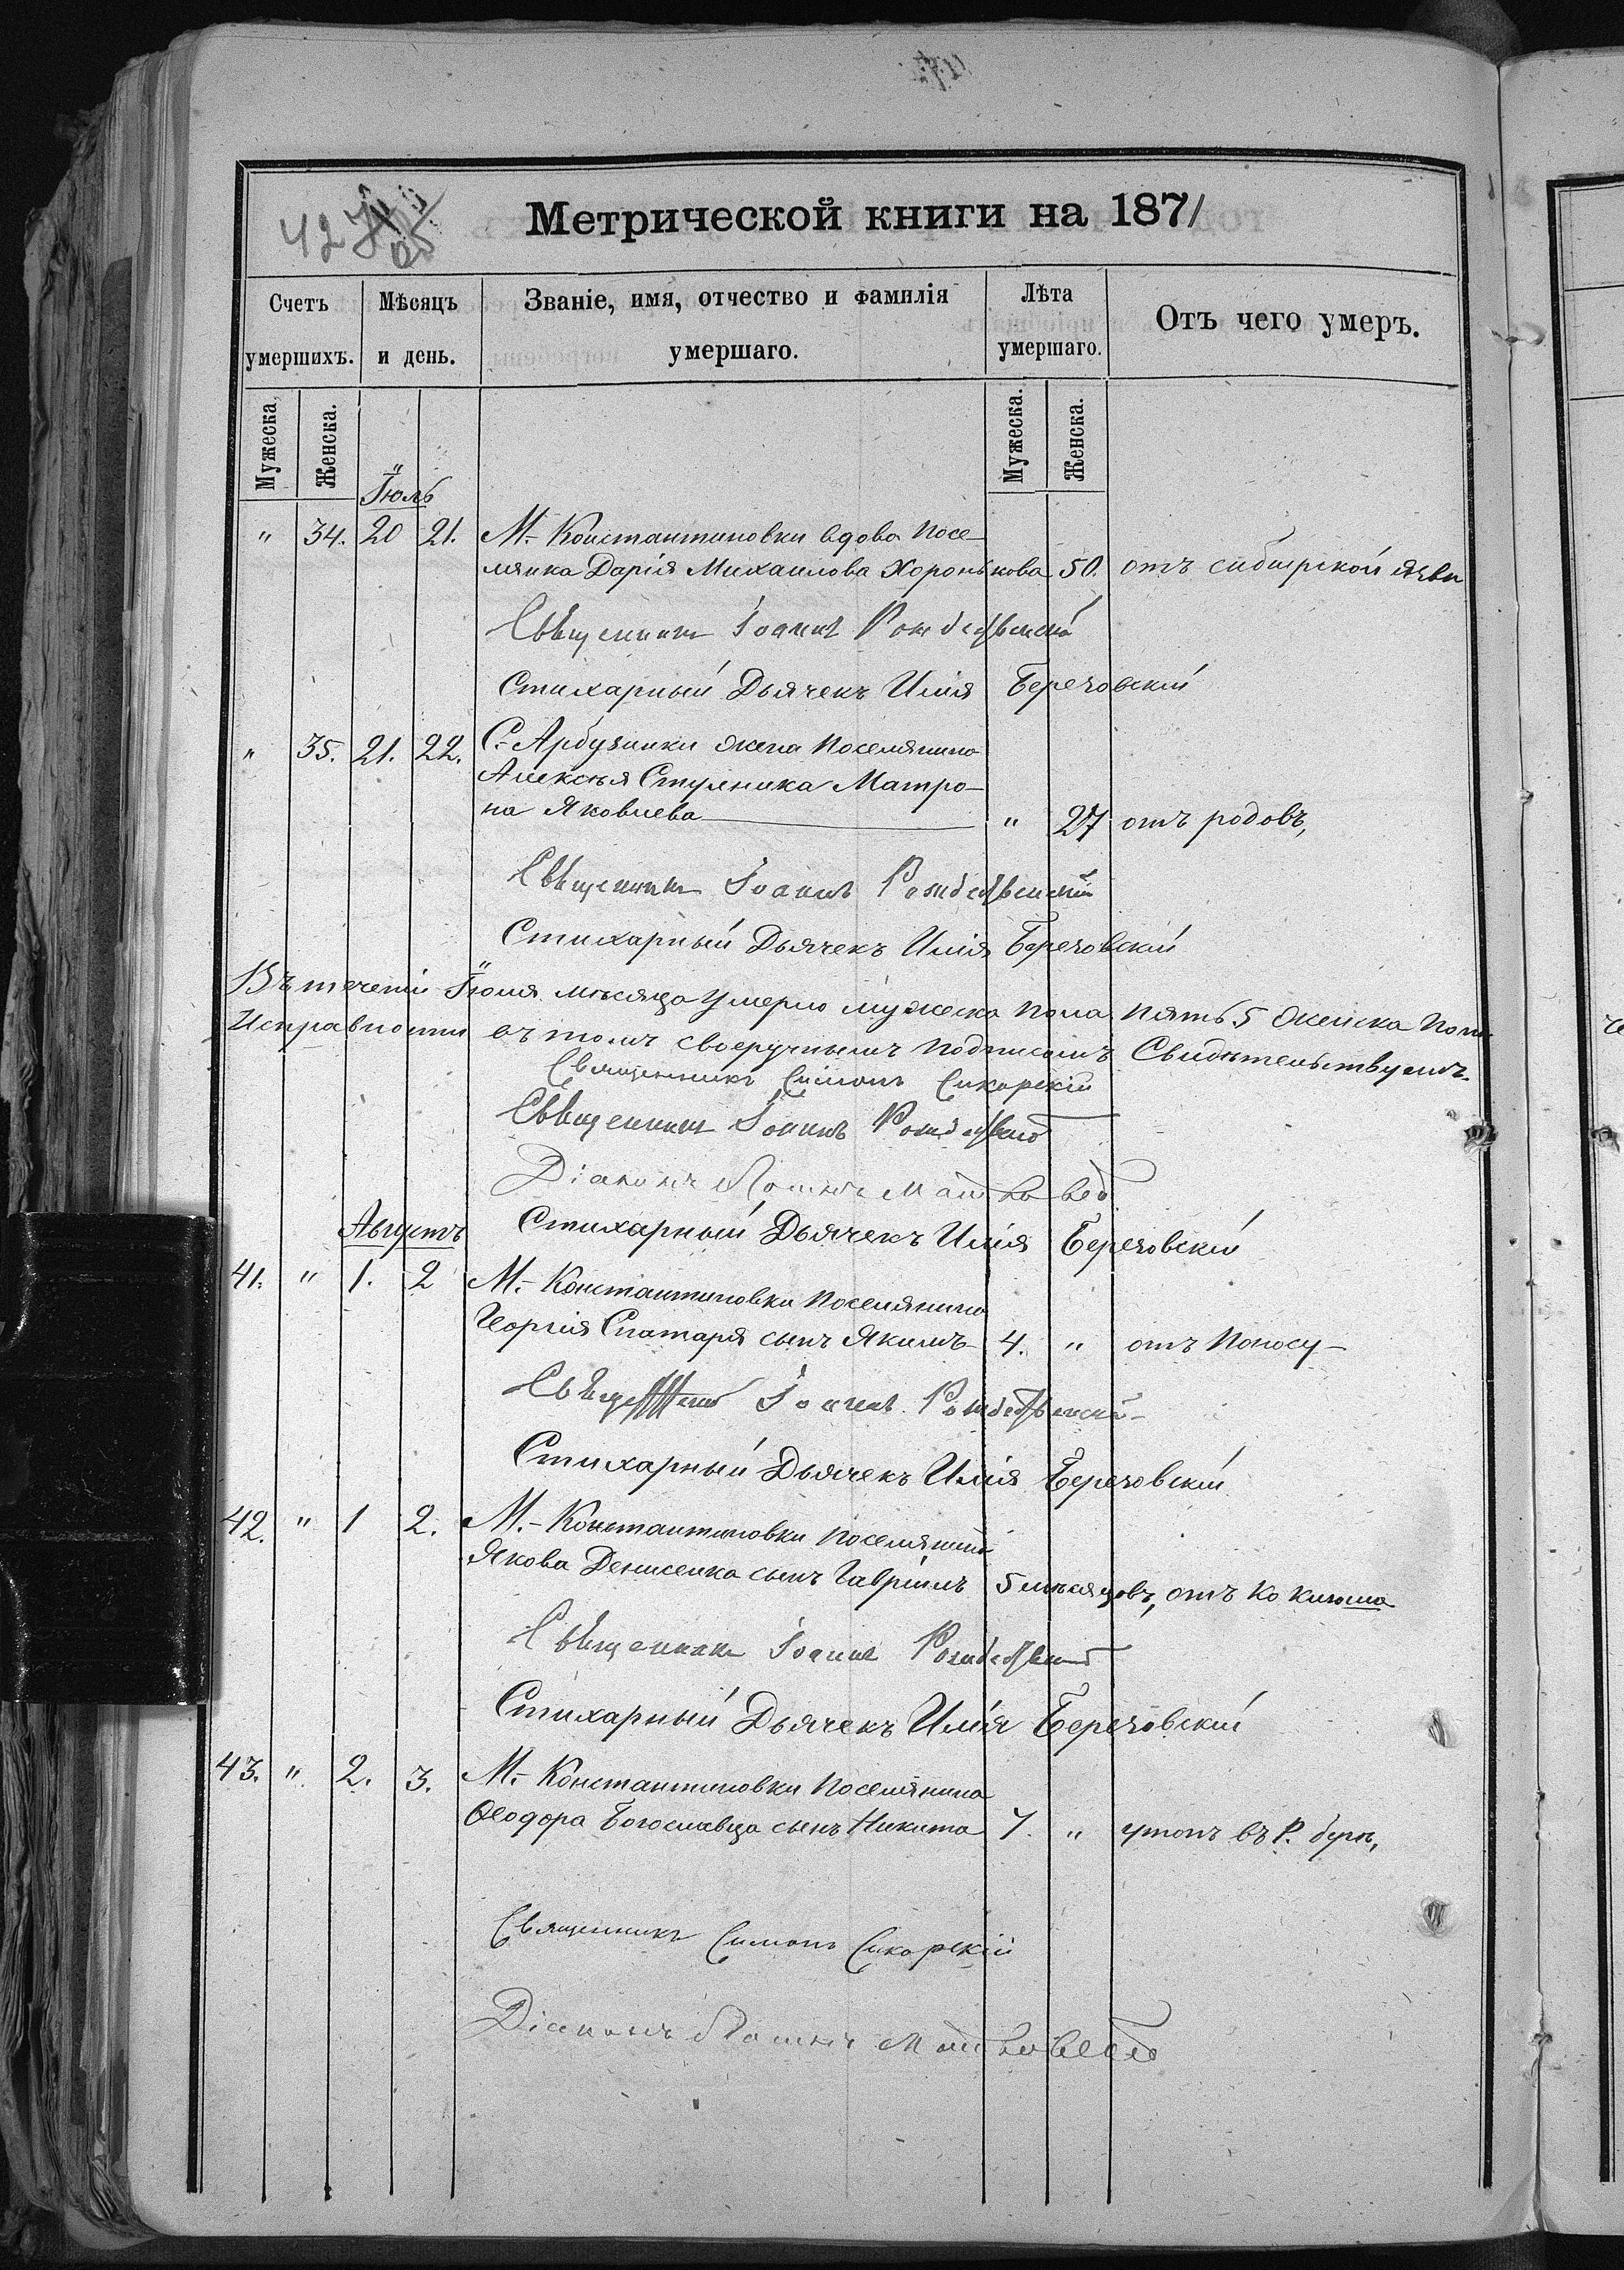 Метрической книги на 1871
Счетъ умершихъ.
Мѣсяцъ и день.
Званіе, имя, отчество и фамилія умершаго.
Лѣта умершаго.
Отъ чего умеръ.
Мужеска.
Женска.
Мужеска.
Женска.
Іюль
" 34. 20 21. М.- Константиновки вдова посе-
лянка Дарія Михаилова Хоронькова 50. отъ сибирской язви
Священникъ Іоаннъ Рождественскій
Стихарный Дьячекъ Илія Березовскій
" 35. 21. 22. С.- Арбузинки жена поселянина
Алексѣя Стуяника Матро-
на Яковлева " 27 отъ родовъ,
Священникъ Іоаннъ Рождественскій
Стихарный Дьячекъ Илія Березовскій
Въ теченіи Іюля мѣсяца умерло мужеска пола пять 5 женска пола
Исправности въ томъ своеручнымъ подписомъ Свидѣтельствуемъ.
Священникъ Симонъ Сикорскій
Священникъ Іоаннъ Рождественскій
Діаконъ
Стихарный Дьячекъ Илія Березовскій
Августъ
41. " 1. 2 М.- Константиновки поселянина
Георгія Спатаря сынъ Якимъ 4. " отъ поносу-
Священникъ Іоаннъ Рождественскій
Стихарный Дьячекъ Илія Березовскій
42. " 1 2. М.- Константиновки поселянина
Якова Денисенка сынъ Гавріилъ 5 мѣсяцовъ, отъ коклюша
Священникъ Іоаннъ Рождественскій
Стихарный Дьячекъ Илія Березовскій
43. " 2. 3. М.- Константиновки поселянина
Ѳеодора Богославца сынъ Никита 7. " утопъ въ Р. бугѣ,
Священникъ Симонъ Сикорскій
Діаконъ